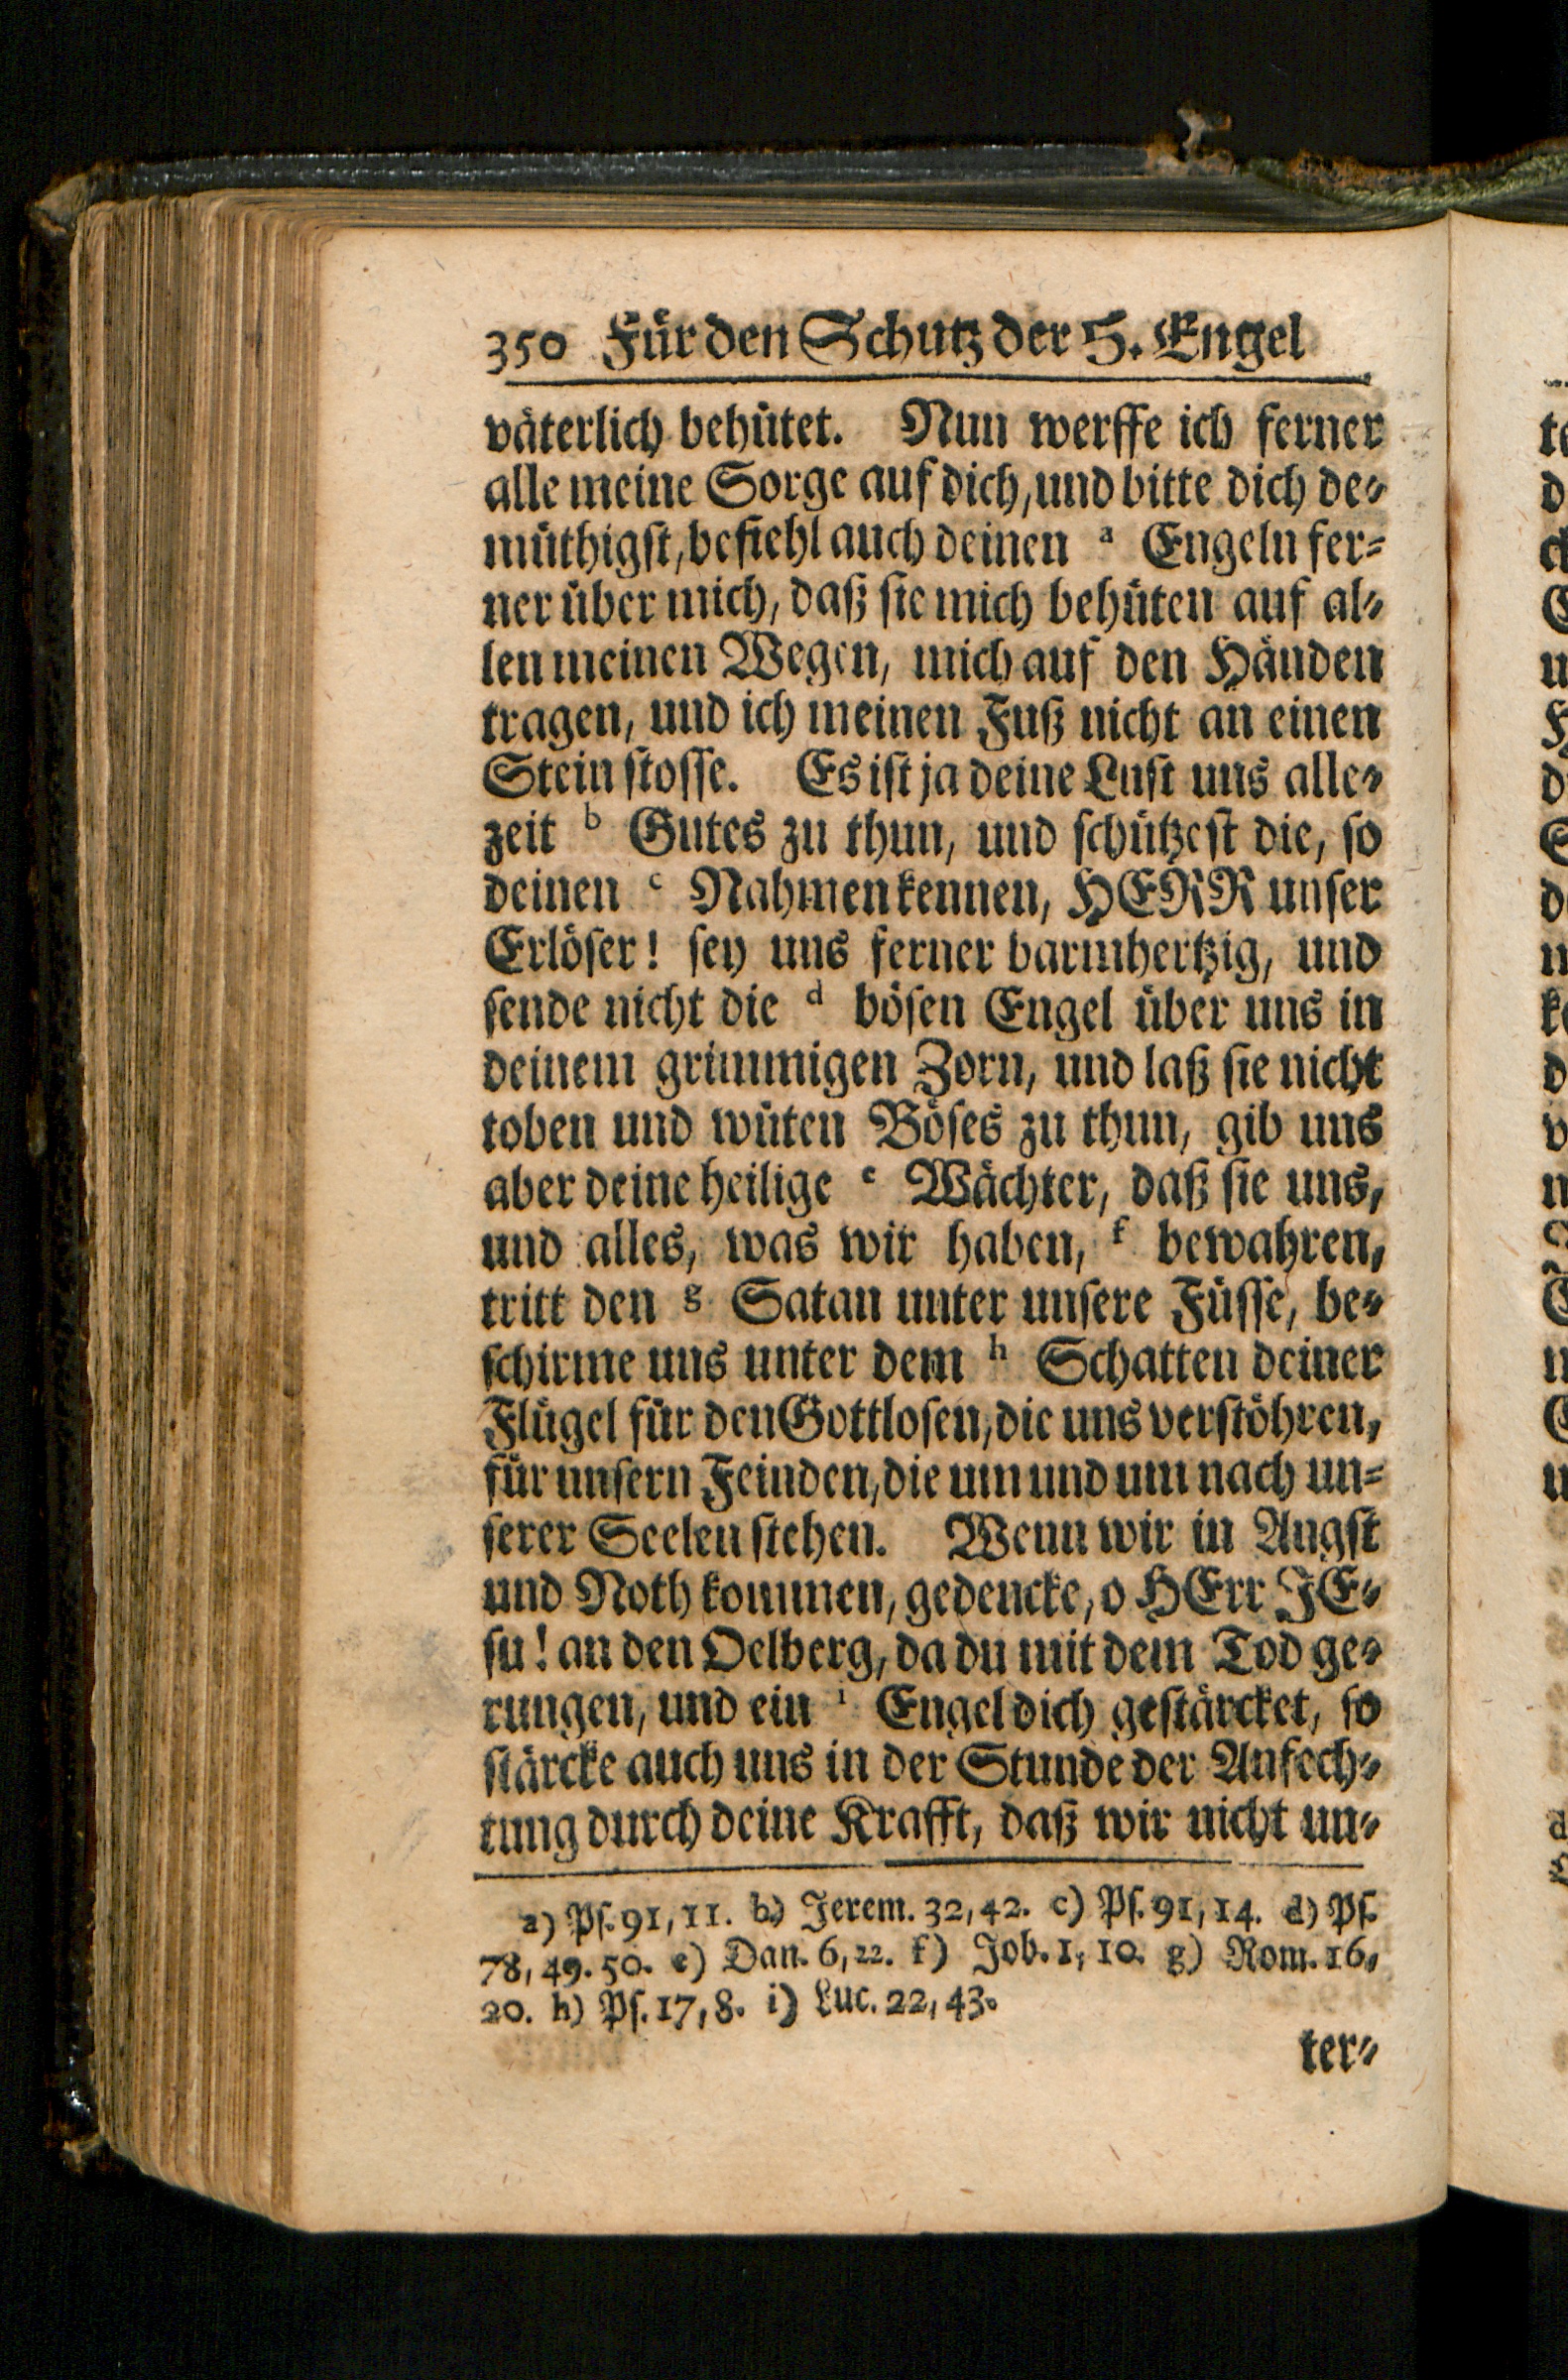 350 Für den Schutz der H. Engel
väterlich behütet. Nun werffe ich ferner
alle meine Sorge auf dich, und bitte dich de-
müthigst, befiehl auch deinen a Engeln fer-
ner über mich, daß sie mich behüten auf al-
len meinen Wegen, mich auf den Händen
tragen, und ich meinen Fuß nicht an einen
Stein stosse. Es ist ja deine Lust uns alle-
zeit b Gutes zu thun, und schützest die, so
deinen c Nahmen kennen, HERR unser
Erlöser! sey uns ferner barmhertzig, und
sende nicht die d bösen Engel über uns in
deinem grimmigen Zorn, und laß sie nicht
toben und wüten Böses zu thun, gib uns
aber deine heilige e Wächter, daß sie uns,
und alles, was wir haben, f bewahren,
tritt den g Satan unter unsere Füsse, be-
schirme uns unter dem h Schatten deiner
Flügel für den Gottlosen, die uns verstöhren,
für unsern Feinden, die um und um nach un-
serer Seelen stehen. Wenn wir in Angst
und Noth kommen, gedencke, o HErr JE-
su! an den Oelberg, da du mit dem Tod ge-
rungen, und ein i Engel dich gestärcket, so
stärcke auch uns in der Stunde der Anfech-
tung durch deine Krafft, daß wir nicht un-
a) Ps. 91, 11. b) Jerem. 32, 42. c) Ps. 91, 14. d) Ps.
78, 49. 50. e) Dan. 6, 22. f) Job. 1, 10. g) Rom. 16,
20. h) Ps. 17, 8. i) Luc. 22, 43.
ter-